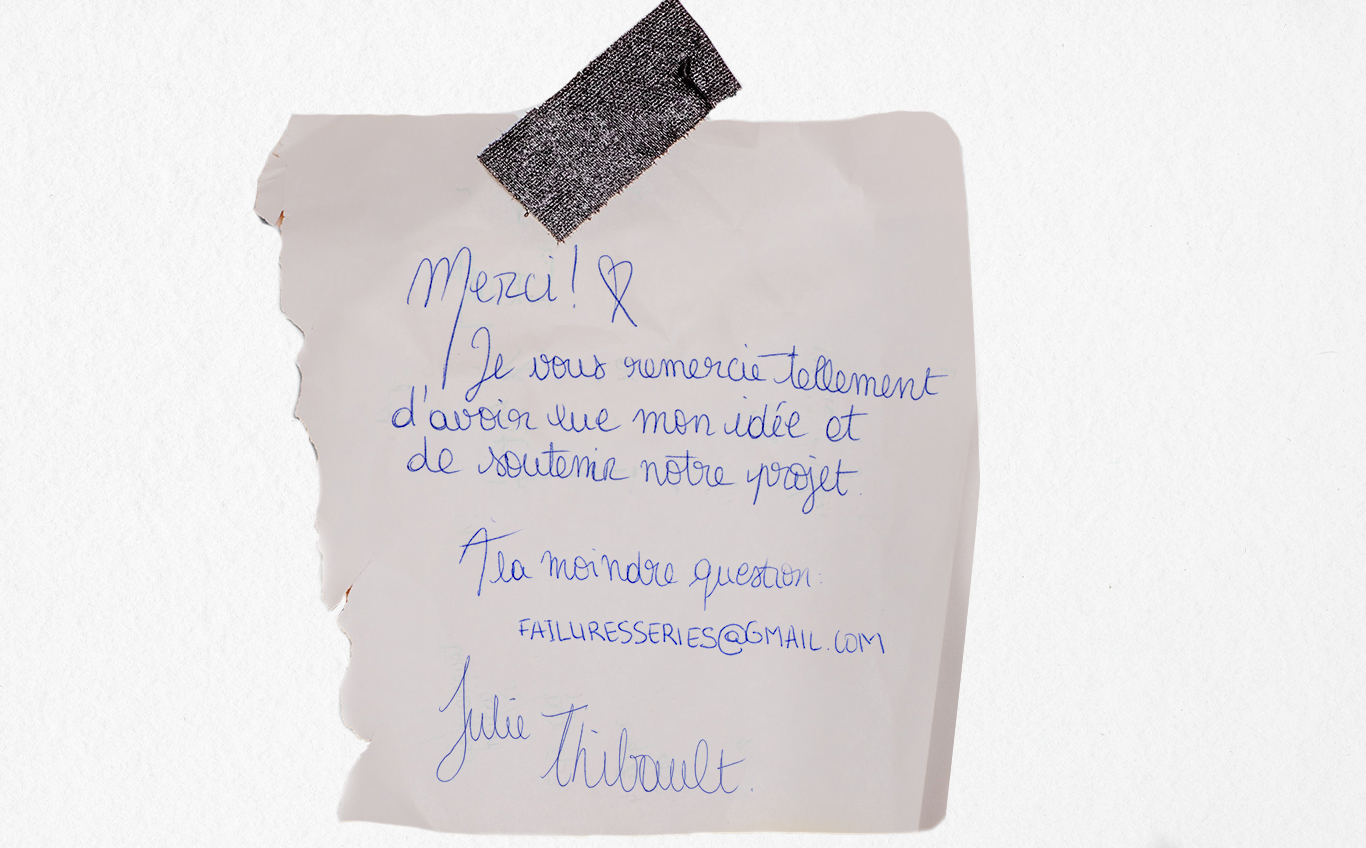 Merci!
Je vous remercie tellement
d'avoir lue mon idée et
de soutenir notre projet.
A la moindre question:
FAILURESSERIES@GMAIL.COM
Julie
Thibault.